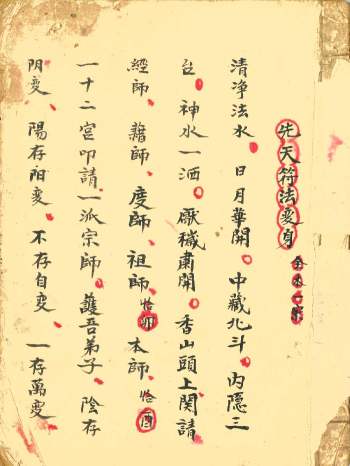 先天符法变身
全本一宗
清净法水 日月華開 中藏北斗 内隐三
台 神水一洒 厭穢肅開 香山頭上関請
經師 藉師 度師 祖師 恰卯 本師 恰酉
一十二宫叩請一派宗師 護吾弟子 陰存
阴变 陽存阳变 不存自变 一存萬变